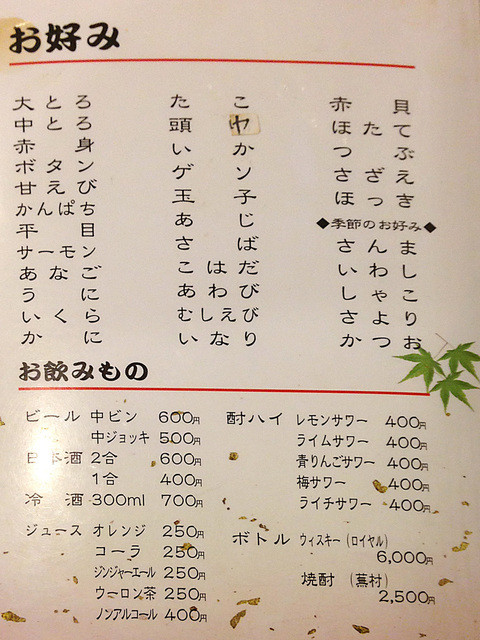 お好み
大とろ
中とろ
赤身
ボタン
甘えび
かんぱち
平目
サーモン
あなご
うに
いくら
かに
たこ
頭ヤ
いか
ゲソ
玉子
あじ
さば
こはだ
あわび
むしえび
いなり
赤貝
ほたて
つぶ
さざえ
ほっき
◆季節のお好み◆
さんま
いわし
しゃこ
さより
かつお
お飲みもの
ビール 中ビン 600円
中ジョッキ 500円
日本酒 2合 600円
1合 400円
冷酒 300ml 700円
ジュース オレンジ 250円
コーラ 250円
ジンジャーエール 250円
ウーロン茶 250円
ノンアルコール 400円
酎ハイ レモンサワー 400円
ライムサワー 400円
青りんごサワー 400円
梅サワー 400円
ライチサワー 400円
ボトル ウィスキー(ロイヤル)
6,000円
焼酎 (蕪村)
2,500円